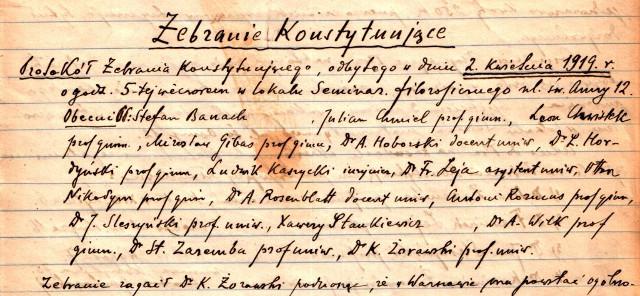 Zebranie Konstytujące
Protokół Zebrania Konstytującego, odbytego w dniu 2. kwietnia 1919. r.
o godz. 5-tej wieczorem w lokalu Seminar. filozoficznego ul. św. Anny 12.
Obecni: Stefan Banach , Julian Chmiel prof gimn., Leon Chwistek
prof gimn., Mirosław Gibas prof gimn., Dr A. Hoborski docent uniw., Dr L. Hor-
dyński prof gimn, Ludwik Kaszycki inżynier, Dr Fr. Leja asystent uniw, Otton
Nikodym prof gimn, Dr A. Rosenblatt docent uniw, Antoni Rozmus prof gimn,
Dr J. Sleszyński prof. uniw., Xawery Stankiewicz , Dr A. Wilk prof
gimn., Dr St. Zaremba prof uniw., Dr K. Żorawski prof. uniw.
Zebranie zagaił Dr K. Żorawski podnosząc, że w Warszawie ma powstać ogólno-